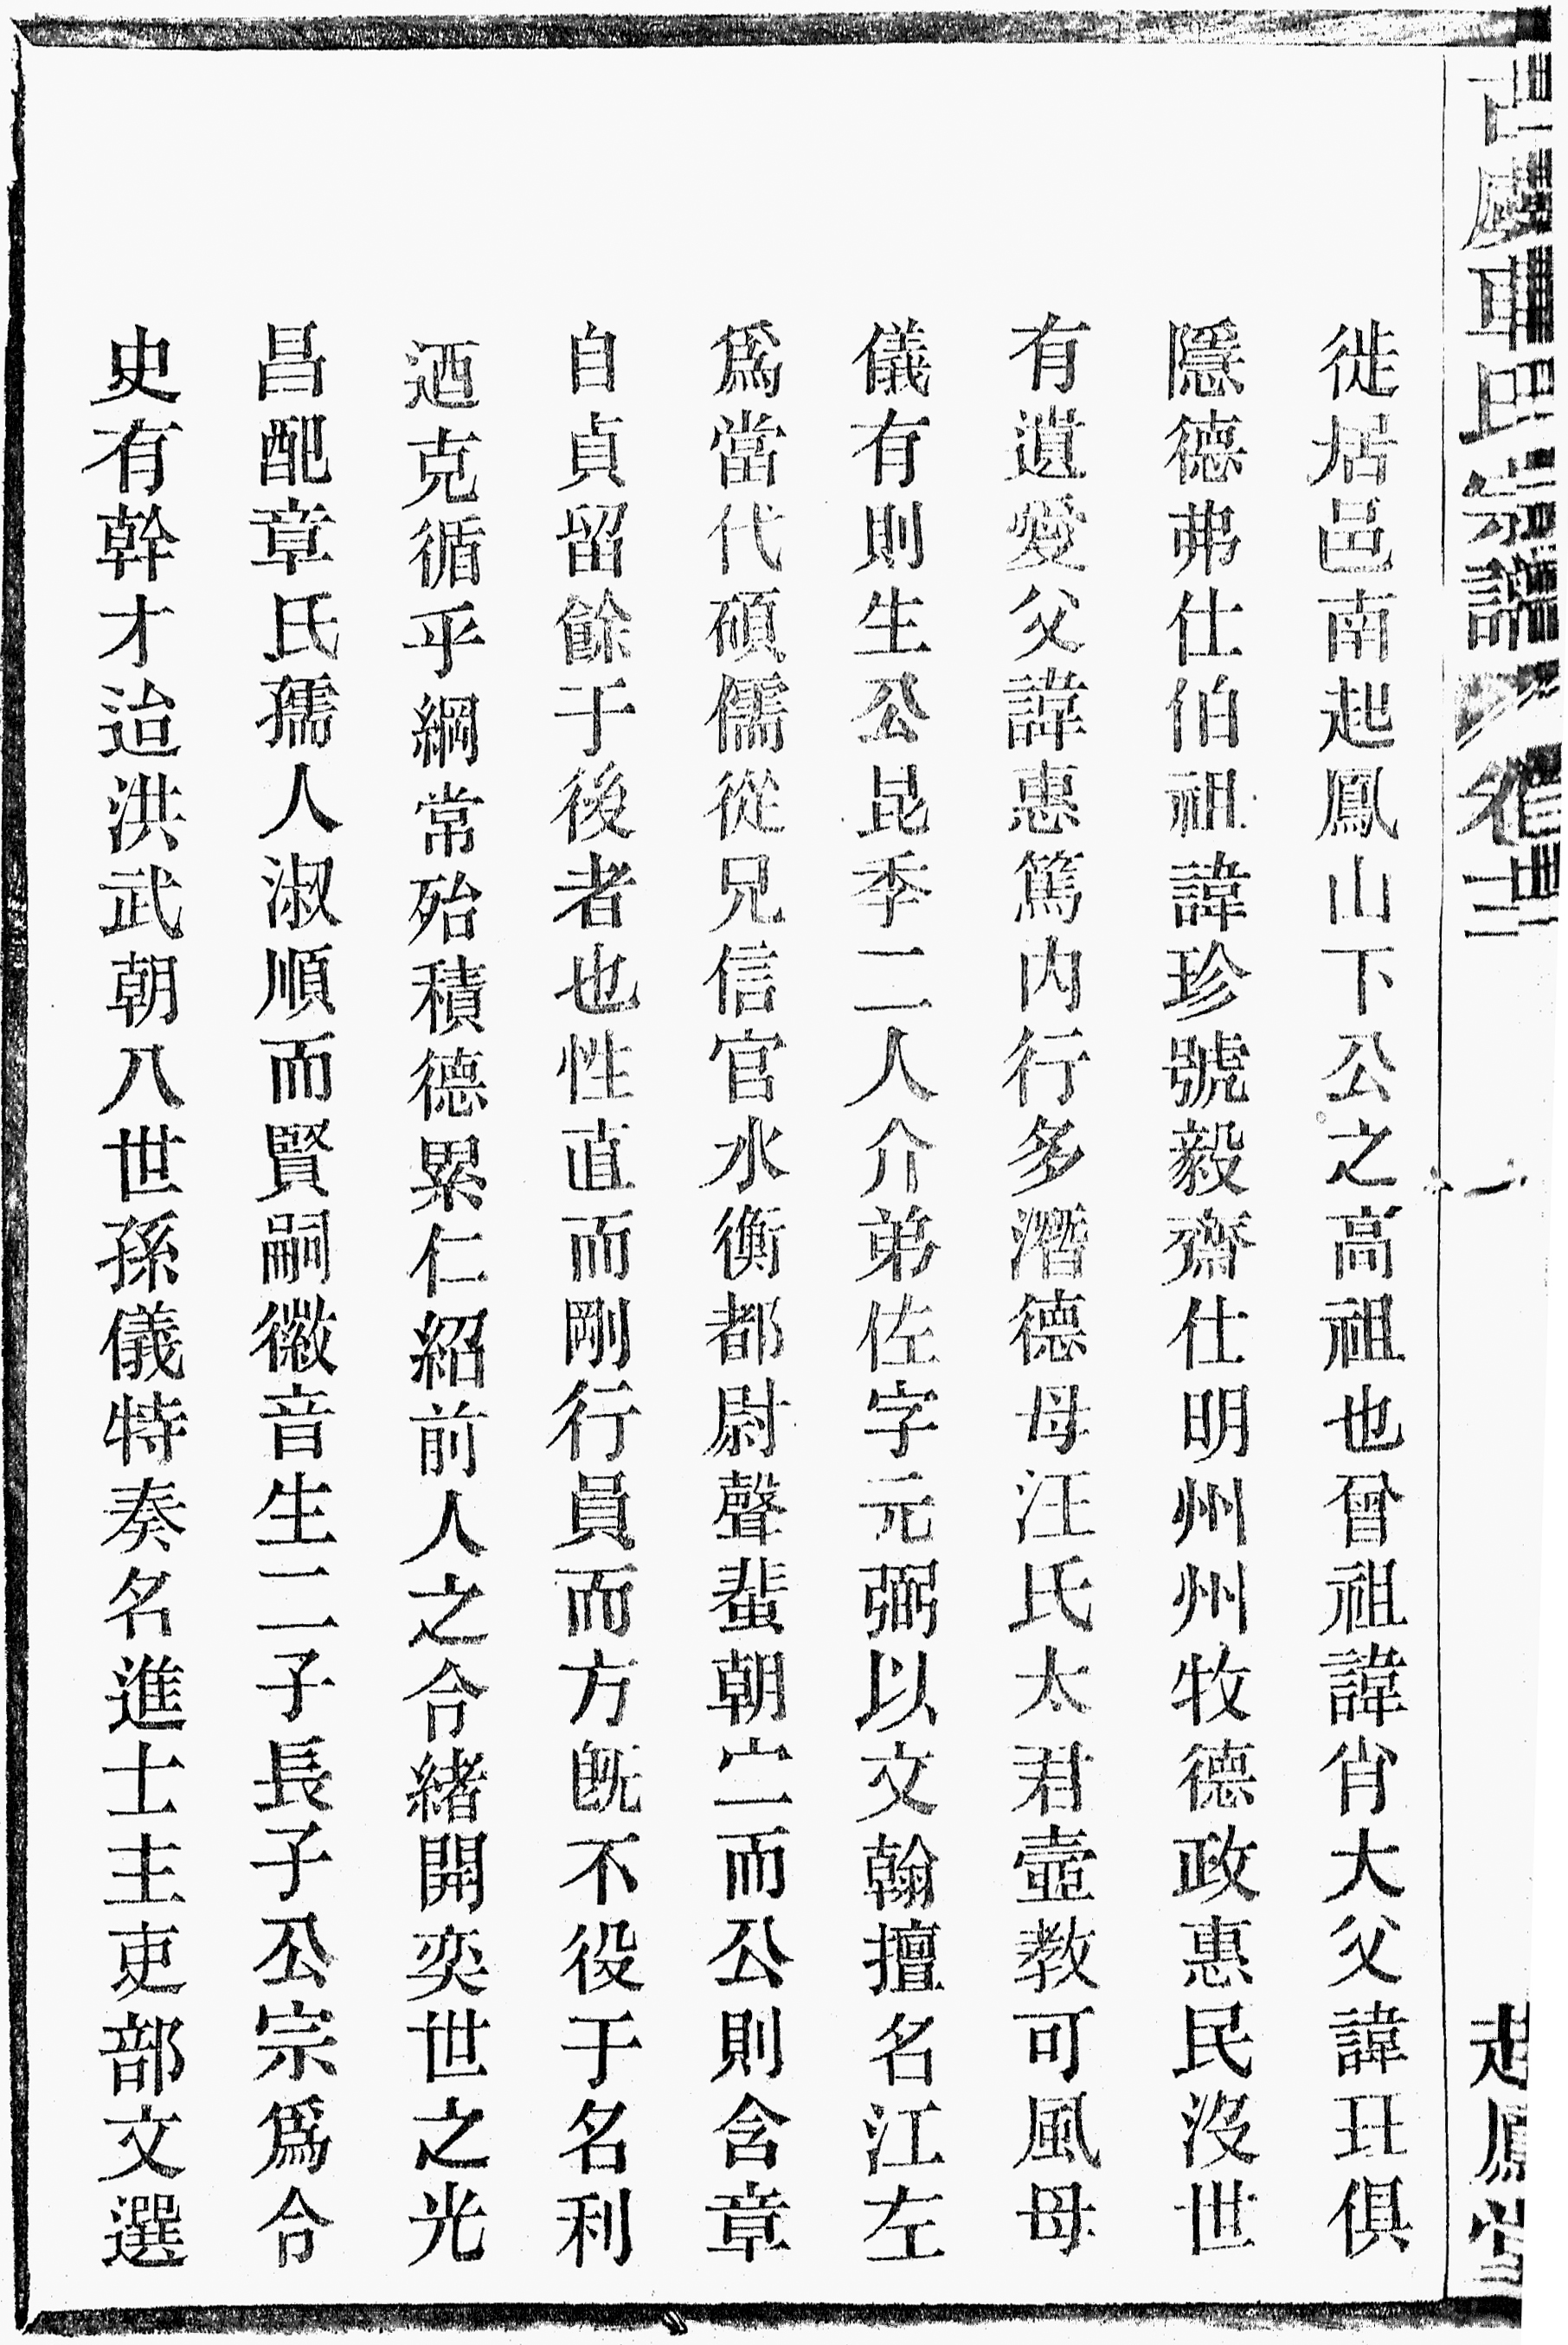 徙居邑南起鳳山下公之高祖也曾祖諱肖大父諱玨俱
隱德弗仕伯祖諱珍號毅齋仕明州州牧德政惠民沒世
有遺愛父諱惠篤內行多潛德母汪氏太君壼教可風母
儀有則生公昆季二人介弟佐字元弼以文翰擅名江左
爲當代碩儒從兄信官水衡都尉聲蜚朝宁而公則含章
自貞留餘于後者也性直而剛行員而方旣不役于名利
迺克循乎綱常殆積德累仁紹前人之令緒開奕世之光
昌配章氏孺人淑順而賢嗣徽音生二子長子公宗爲令
史有幹才迨洪武朝八世孫儀特奏名進士主吏部文選
氏宗譜
起鳳堂